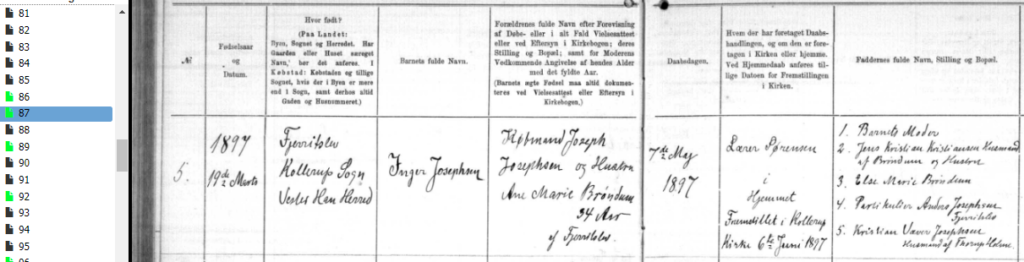 81
82
83
84
85
86
87
88
89
90
91
92
93
94
95
96
№
Fødselsaar
og
Datum.
Hvor født?
(Paa Landet:
Byen, Sognet og Herredet. Har
Gaarden eller Huset særeget
Navn, bør det anføres. I
Købstad: Købstaden og tillige
Sognet, hvis der i Byen er mere
end 1 Sogn, samt derhos altid
Gaden og Husnummeret.)
Barnets fulde Navn.
Forældrenes fulde Navn efter Forevisning
af Døbe- eller i alt Fald Vielsesattest
eller ved Eftersyn i Kirkebogen; deres
Stilling og Bopæl; samt for Moderens
Vedkommende Angivelse af hendes Alder
med det fyldte Aar.
(Barnets ægte Fødsel maa altid dokumen-
teres ved Vielsesattest eller Eftersyn i
Kirkebogen.)
Daabsdagen.
Hvem der har foretaget Daabs-
handlingen, og om den er fore-
tagen i Kirken eller hjemme.
Ved Hjemmedaab anføres til-
lige Datoen for Fremstillingen
i Kirken.
Faddernes fulde Navn, Stilling og Bopæl.
5.
1897
19de Marts
Fjerritslev
Kollerup Sogn
Vester Han Herred
Inger Josephsen
Købmand Joseph
Josephsen og Hustru
Ane Marie Brøndum
34 Aar
af Fjerritslev.
7de Maj
1897
Lærer Sørensen
i
Hjemmet
Fremstillet i Kollerup
Kirke 6te Juni 1897
1. Barnets Moder
2. Jens Kristian Kristiansen Husmand
af Brøndum og Hustru
3. Else Marie Brøndum
4. Partikulier Anders Josephsen
Fjerritslev
5. Kristian Josephsen
Husmand af Thorup Holme